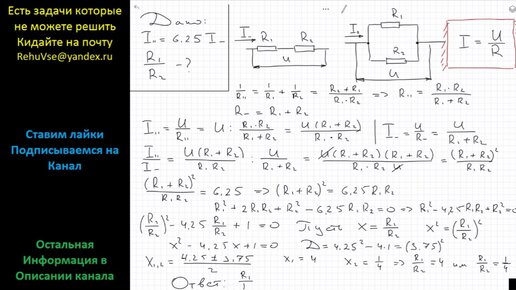 Есть задачи которые
не можете решить
Кидайте на почту
RehuVse@yandex.ru
Ставим лайки
Подписываемся на
Канал
Остальная
Информация в
Описании канала
Дано:
I₌ = 6.25 I₋
R₁/R₂ - ?
I₋ R₁ R₂
U
I₌ R₁
R₂
U
I = U/R
1/R₌ = 1/R₁ + 1/R₂ = (R₂ + R₁)/(R₁·R₂) => R₌ = (R₁·R₂)/(R₁ + R₂)
R₋ = R₁ + R₂
I₌ = U/R₌ = U : (R₁·R₂)/(R₁ + R₂) = U(R₁ + R₂)/(R₁·R₂) | I₋ = U/R₋ = U/(R₁ + R₂)
I₌/I₋ = U(R₁ + R₂)/(R₁·R₂) : U/(R₁ + R₂) = U(R₁ + R₂)(R₁ + R₂)/(R₁·R₂ U) = (R₁ + R₂)²/(R₁R₂)
(R₁ + R₂)²/(R₁R₂) = 6.25 => (R₁ + R₂)² = 6.25 R₁R₂
R₁² + 2R₁R₂ + R₂² - 6.25 R₁R₂ = 0 => R₁² - 4,25 R₁R₂ + R₂² = 0
(R₁/R₂)² - 4.25 R₁/R₂ + 1 = 0 Пусть x = R₁/R₂ x² = (R₁/R₂)²
x² - 4.25x + 1 = 0 D = 4.25² - 4·1 = (3.75)²
x₁,₂ = (4.25 ± 3.75)/2 x₁ = 4 x₂ = 1/4 => R₁/R₂ = 4 или R₁/R₂ = 1/4
Ответ: R₁